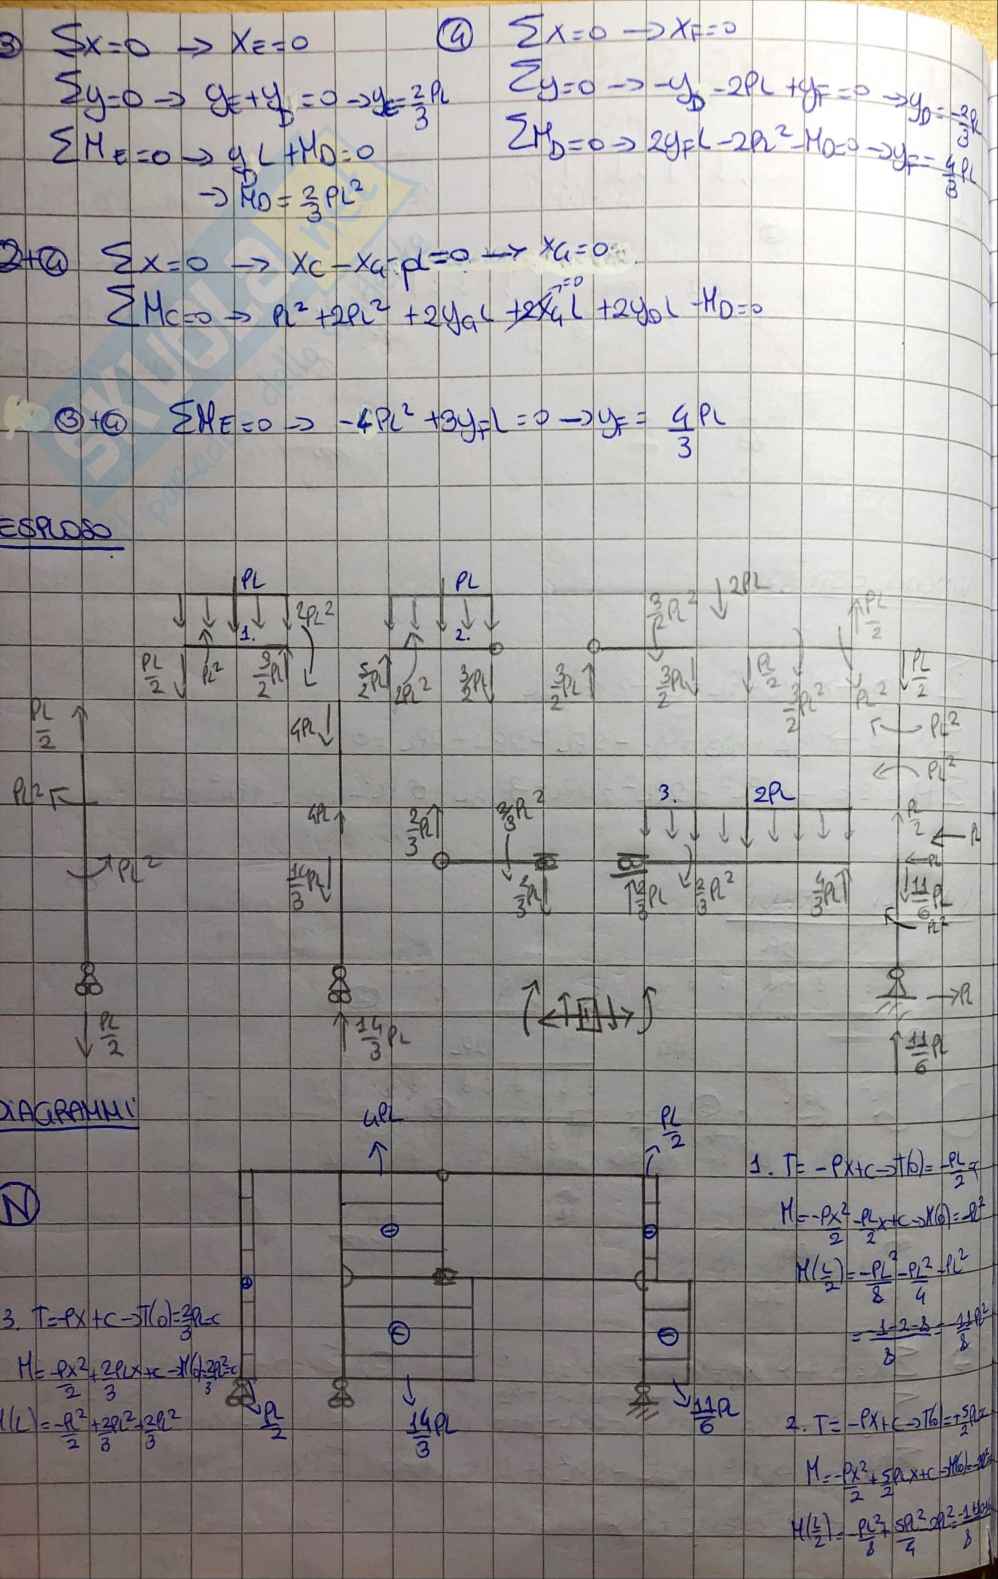 ③ ΣX=0 → X_E=0
Σy=0 → y_E+y_D=0 → y_E=2/3 PL
ΣM_E=0 → y_D L+M_D=0
→ M_D=2/3 PL²
④ ΣX=0 → X_F=0
Σy=0 → -y_D-2PL+y_F=0 → y_D=-2/3 PL
ΣM_D=0 → 2y_F L-2PL²-M_D=0 → y_F=4/3 PL
2+④ ΣX=0 → X_C-X_G-PL=0 → X_G=0
ΣM_C=0 → PL²+2PL²+2y_G L+2X_G L+2y_D L-M_D=0
=0
③+④ ΣM_E=0 → -4PL²+3y_F L=0 → y_F=4/3 PL
SKUOLA.net
ESPLOSO
PL PL 2PL
1. 2PL² 2. 3/2 PL² PL/2
PL/2 PL² 3/2 PL 5/2 PL 2PL² 3/2 PL 3/2 PL 3/2 PL PL/2 3/2 PL² PL² PL/2
PL/2 4PL PL²
PL² 4PL 2/3 PL 2/3 PL² 3. 2PL PL/2 PL²
PL² 14/3 PL 2/3 PL 2/3 PL 2/3 PL² 4/3 PL PL 11/6 PL
PL²
PL
PL/2 14/3 PL 11/6 PL
DIAGRAMMI
4PL PL/2
N
14/3 PL 11/6 PL
PL/2
1. T=-PX+C→T(0)=-PL/2
M=-PX²/2-PL/2 X+C→M(0)=-PL²
M(L/2)=-PL²/8-PL²/4-PL²
=-1-2-8/8=-11PL²/8
3. T=-PX+C→T(0)=2/3 PL=C
M=-PX²/2+2PLX/3+C→M(0)=2PL²/3=C
M(L)=-PL²/2+2PL²/3+2PL²/3
2. T=-PX+C→T(0)=+5PL/2
M=-PX²/2+5/2 PLX+C→M(0)=
M(L/2)=-PL²/8+5PL²/4-2PL²=